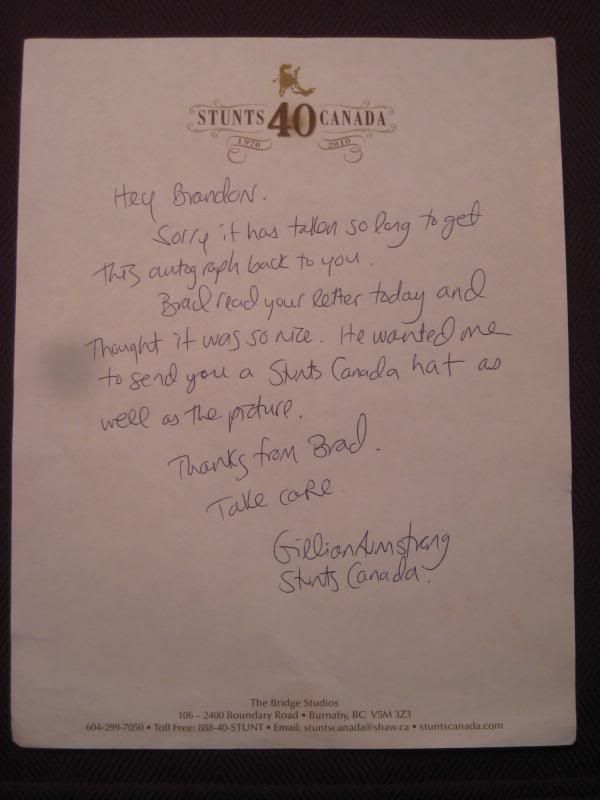 STUNTS 40 CANADA
1970 2010
Hey Brandon.
Sorry it has taken so long to get
this autograph back to you.
Brad read your letter today and
Thought it was so nice. He wanted me
to send you a Stunts Canada hat as
well as the picture.
Thanks from Brad.
Take care.
Gillian Armstrong
Stunts Canada.
The Bridge Studios
106 – 2400 Boundary Road • Burnaby, BC V5M 3Z3
604-299-7050 • Toll Free: 888-40-STUNT • Email: stuntscanada@shaw.ca • stuntscanada.com